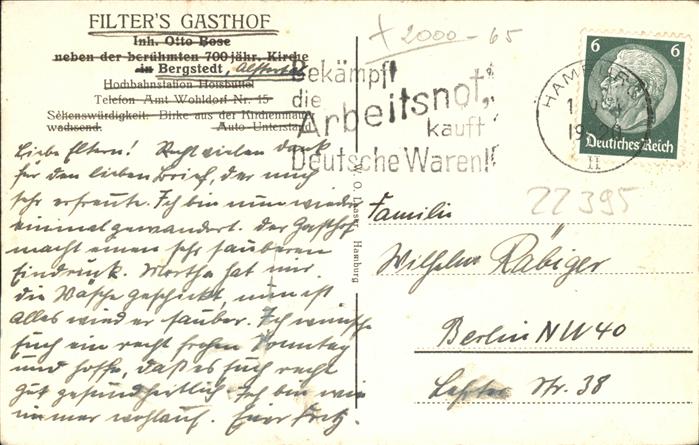 FILTER'S GASTHOF
Inh. Otto Bose
neben der berühmten 700 jähr. Kirche
in Bergstedt, Alstertal
Hochbahnstation Hoisbüttel
Telefon Amt Wohldorf Nr. 15
Sehenswürdigkeit: Birke aus der Kirchenmauer
wachsend. Auto-Unterstand
Liebe Eltern! Recht vielen Dank
für den lieben Brief, der mich
sehr erfreute. Ich bin nun wieder
einmal gewandert. Der Gasthof
macht einen sehr sauberen
Eindruck. Martha hat mir
die Wäsche geschickt, nun ist
alles wieder sauber. Ich wünsche
Euch ein recht frohen Sonntag
und hoffe, daß es Euch recht
gut gesundheitlich. Ich bin wie
immer wohlauf. Euer Fritz.
+2000-65
Bekämpft
die
Arbeitsnot,
kauft
Deutsche Waren!
HAMBURG
19-20
II
6 6
Deutsches Reich
22395
W. O. Hamburg
Familie
Wilhelm Räbiger
Berlin NW 40
Lehrter Str. 38